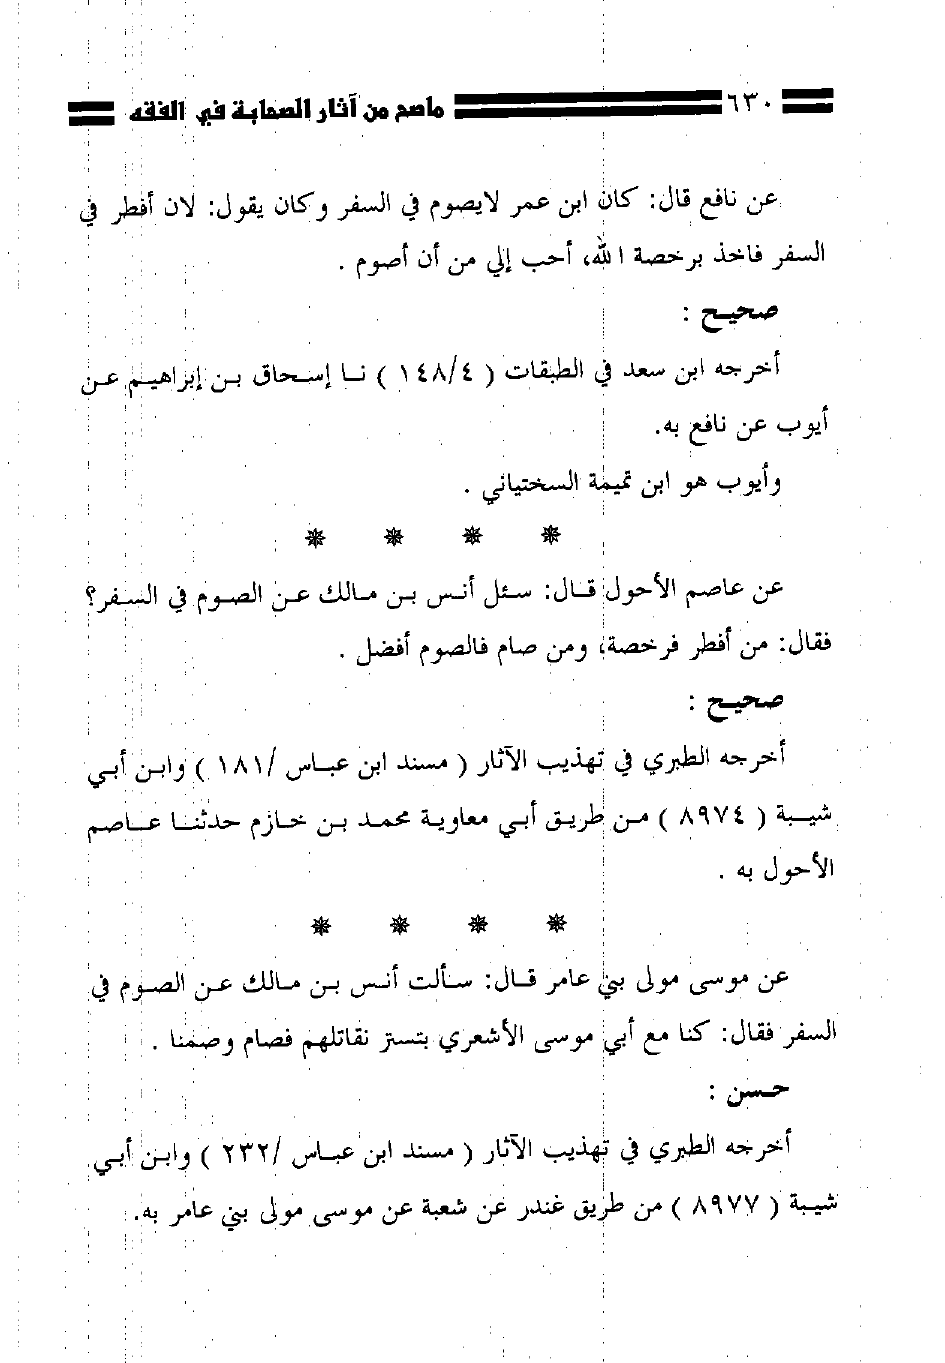 ٦٣٠ ماصح من آثار الصحابة في الفقه
عن نافع قال: كان ابن عمر لايصوم في السفر وكان يقول: لان أفطر في
السفر فاخذ برخصة الله، أحب إلي من أن أصوم .
صحيح :
أخرجه ابن سعد في الطبقات ( ١٤٨/٤ ) نا إسحاق بن إبراهيم عن
أيوب عن نافع به.
وأيوب هو ابن تميمة السختياني .
❋ ❋ ❋ ❋
عن عاصم الأحول قال: سئل أنس بن مالك عن الصوم في السفر؟
فقال: من أفطر فرخصة، ومن صام فالصوم أفضل .
صحيح :
أخرجه الطبري في تهذيب الآثار ( مسند ابن عباس /١٨١ ) وابن أبي
شيبة ( ٨٩٧٤ ) من طريق أبي معاوية محمد بن خازم حدثنا عاصم
الأحول به .
❋ ❋ ❋ ❋
عن موسى مولى بني عامر قال: سألت أنس بن مالك عن الصوم في
السفر فقال: كنا مع أبي موسى الأشعري بتستر نقاتلهم فصام وصمنا .
حسن :
أخرجه الطبري في تهذيب الآثار ( مسند ابن عباس /٢٣٢ ) وابن أبي
شيبة ( ٨٩٧٧ ) من طريق غندر عن شعبة عن موسى مولى بني عامر به.